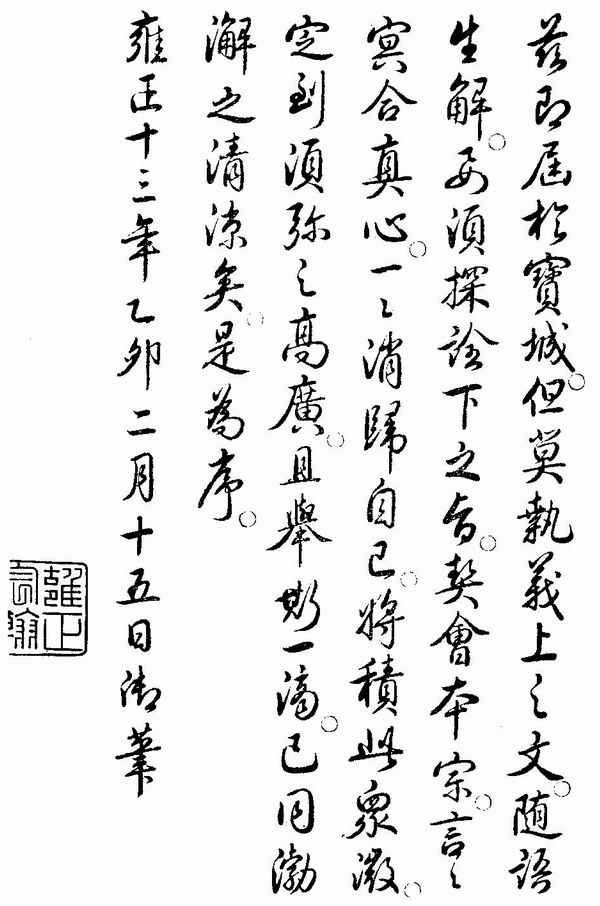 茲即屆於寶城。但莫執義上之文。隨語
生解。要須探詮下之旨。契會本宗。言〻
冥合真心。一〻消歸自己。將積此衆微。
定到須弥之高廣。且舉斯一滴。已同渤
澥之清涼矣。是為序。
雍正十三年乙卯二月十五日御筆
雍正宸翰